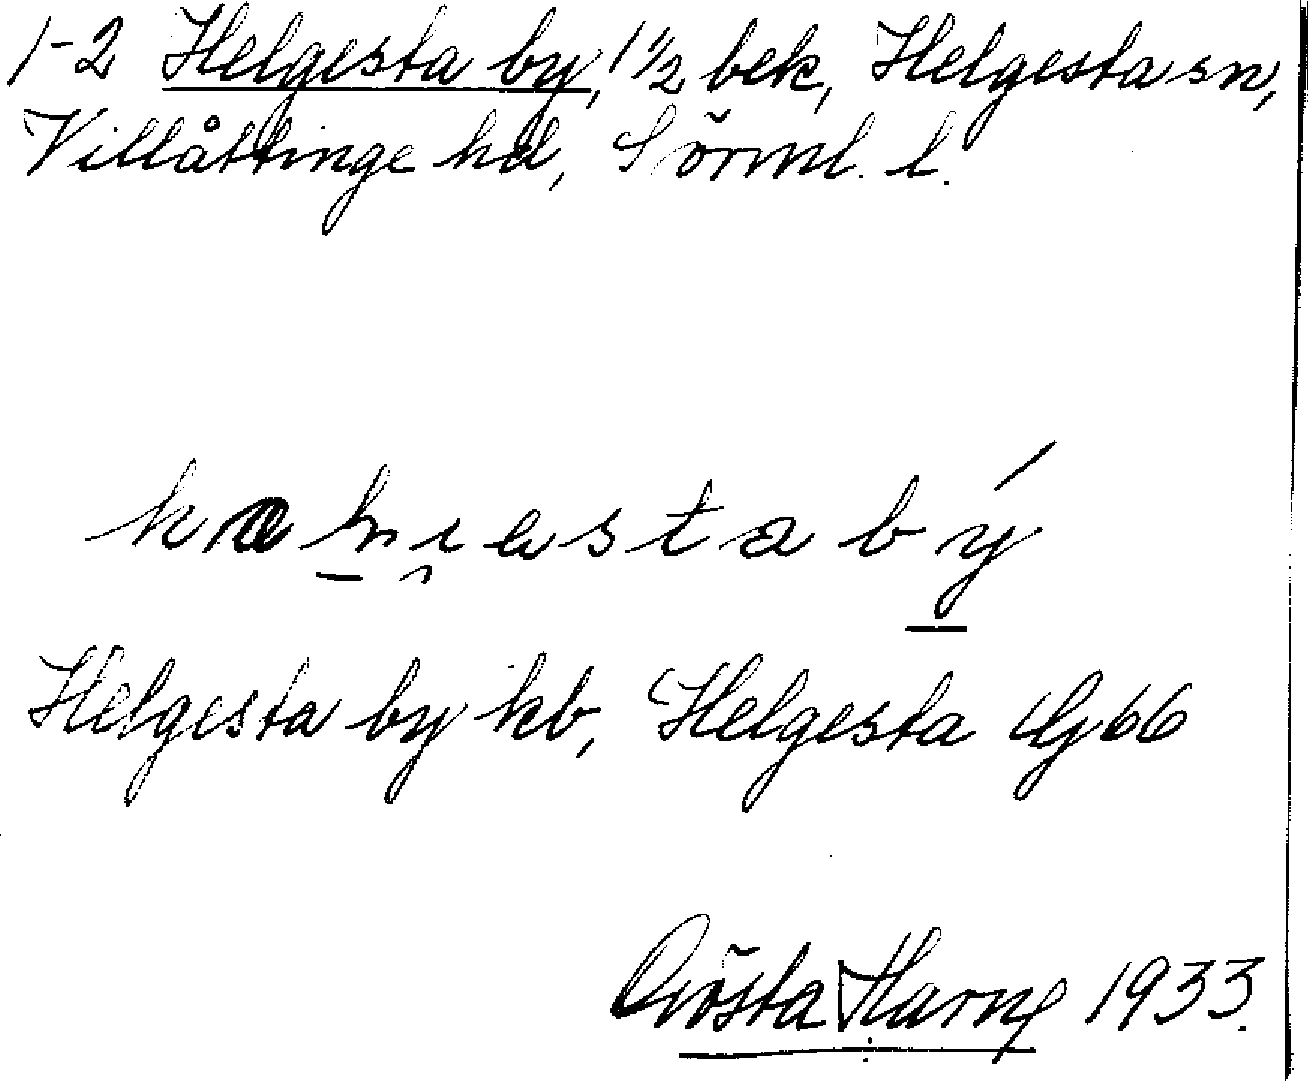 1-2 Helgesta by, 1 1/2 bek, Helgesta sn,
Villåttinge hd, Sörml. l.
Helgesta by kb, Helgesta G 66
Gösta Harne 1933.